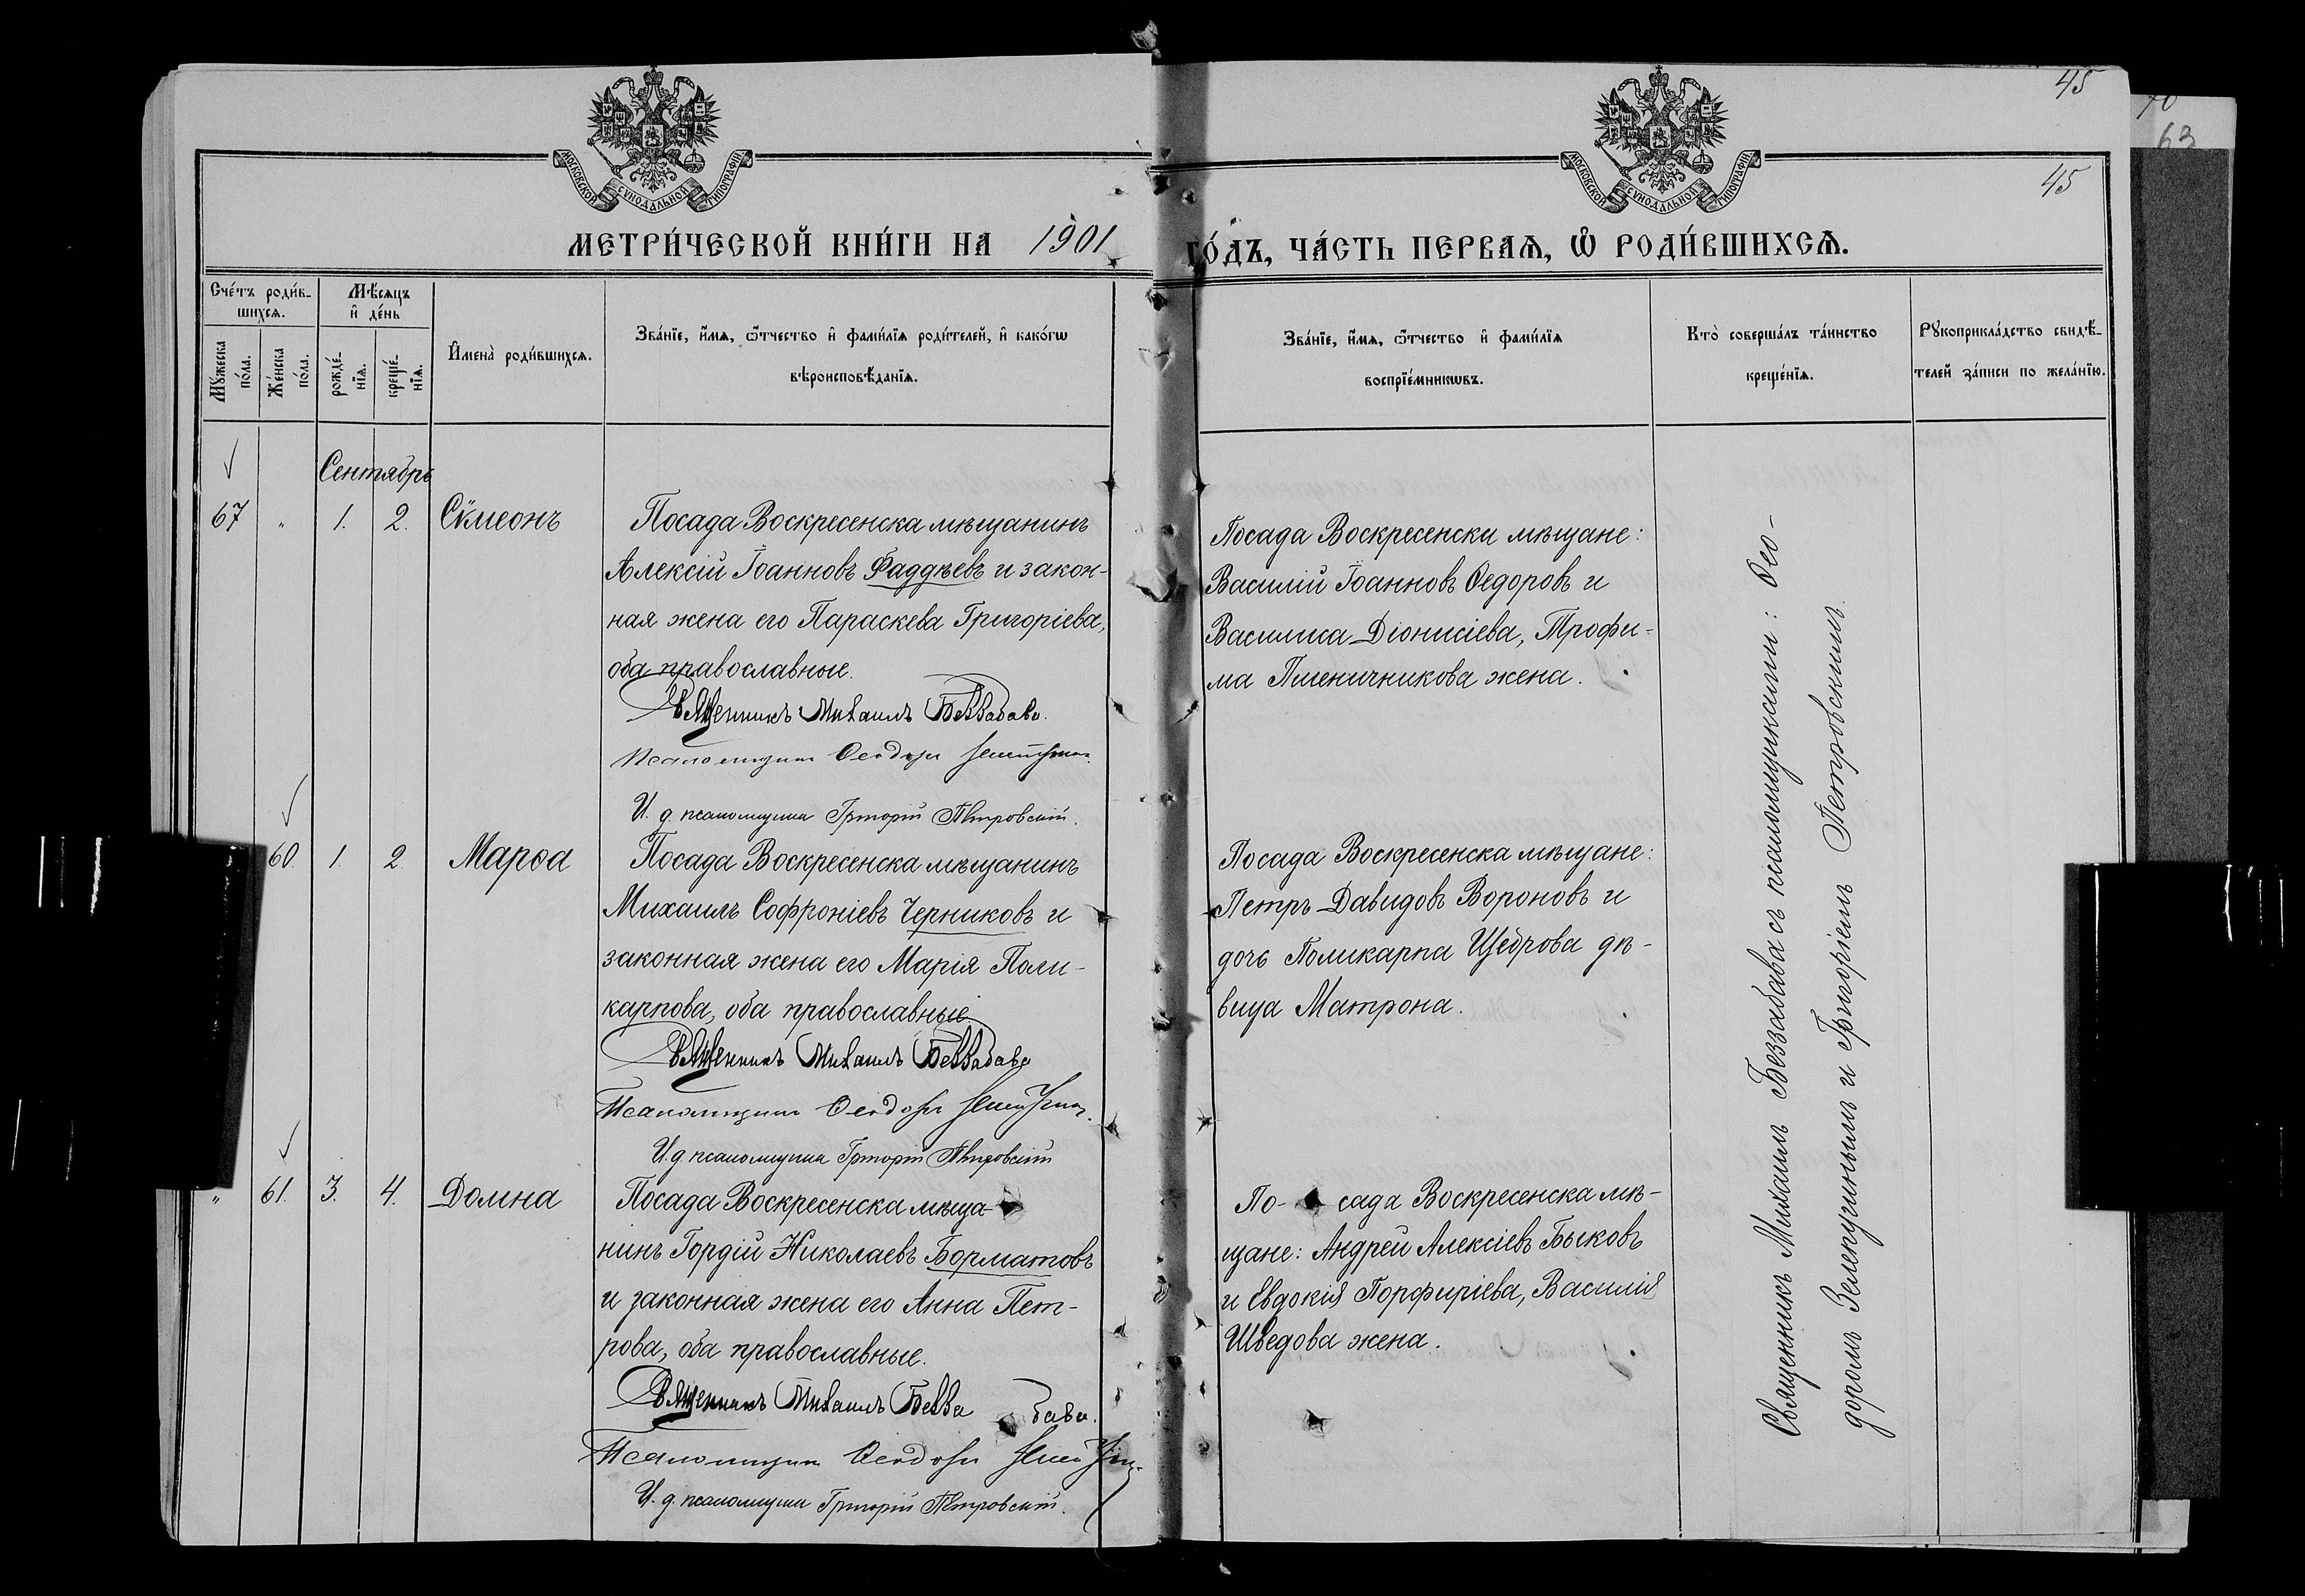 45
70
63
45
МОСКОВСКОЙ СѴНОДАЛЬНОЙ ТИПОГРАФІИ
МОСКОВСКОЙ СѴНОДАЛЬНОЙ ТИПОГРАФІИ
МЕТРИ́ЧЕСКОЙ КНИ́ГИ НА 1901 ГО́ДЪ, ЧА́СТЬ ПЕРВАѦ, Ѡ҆ РОДИ́ВШИХСѦ.
Сче́тъ роди́в-
шихсѧ.
Мѣ́сѧцъ
и҆ де́нь
Мꙋ́жеска по́ла.
Же́нска по́ла.
рожде́-нїѧ.
креще́-нїѧ.
И҆мена̀ роди́вшихсѧ.
Зва́нїе, и҆́мѧ, ѻ҆́тчество и҆ фами́лїѧ роди́телей, и҆ како́гѡ
вѣроисповѣ́данїѧ.
Зва́нїе, и҆́мѧ, ѻ҆́тчество и҆ фами́лїѧ
воспрїе́мникѡвъ.
Кто̀ соверша́лъ та́инство
креще́нїѧ.
Рꙋкоприкла́дство свидѣ́-
телей за́писи по жела́нїю.
Сентябрь
67 " 1. 2. Сѷмеонъ
Посада Воскресенска мѣщанинъ
Алексій Іоанновъ Фаддѣевъ и закон-
ная жена его Параскева Григоріева,
оба православные.
Священникъ Михаилъ Беззабава.
Псаломщикъ Ѳеодоръ
И. д. псаломщика Григорій Петровскій.
Посада Воскресенска мѣщане:
Василій Іоанновъ Ѳедоровъ и
Василиса Діонисіева, Трофи-
ма Пшеничникова жена.
60. 1. 2 Марѳа
Посада Воскресенска мѣщанинъ
Михаилъ Софроніевъ Черниковъ и
законная жена его Марія Поли-
карпова, оба православные
Священникъ Михаилъ Беззабава
Псаломщикъ Ѳеодоръ
И. д. псаломщика Григорій Петровскій
Посада Воскресенска мѣщане:
Петръ Давидовъ Вороновъ и
дочь Поликарпа Щедрова дѣ-
вица Матрона.
" 61. 3. 4. Домна
Посада Воскресенска мѣща-
нинъ Гордій Николаевъ Борматовъ
и законная жена его Анна Пет-
рова, оба православные.
Священникъ Михаилъ Безза бава.
Псаломщикъ Ѳеодоръ
И. д. псаломщика Григорій Петровскій.
По- сада Воскресенска мѣ-
щане: Андрей Алексіевъ Быковъ
и Евдокія Порфиріева, Василія
Шведова жена.
Священникъ Михаилъ Беззабава съ псаломщиками: Ѳео-
доромъ и Григоріемъ Петровскимъ.